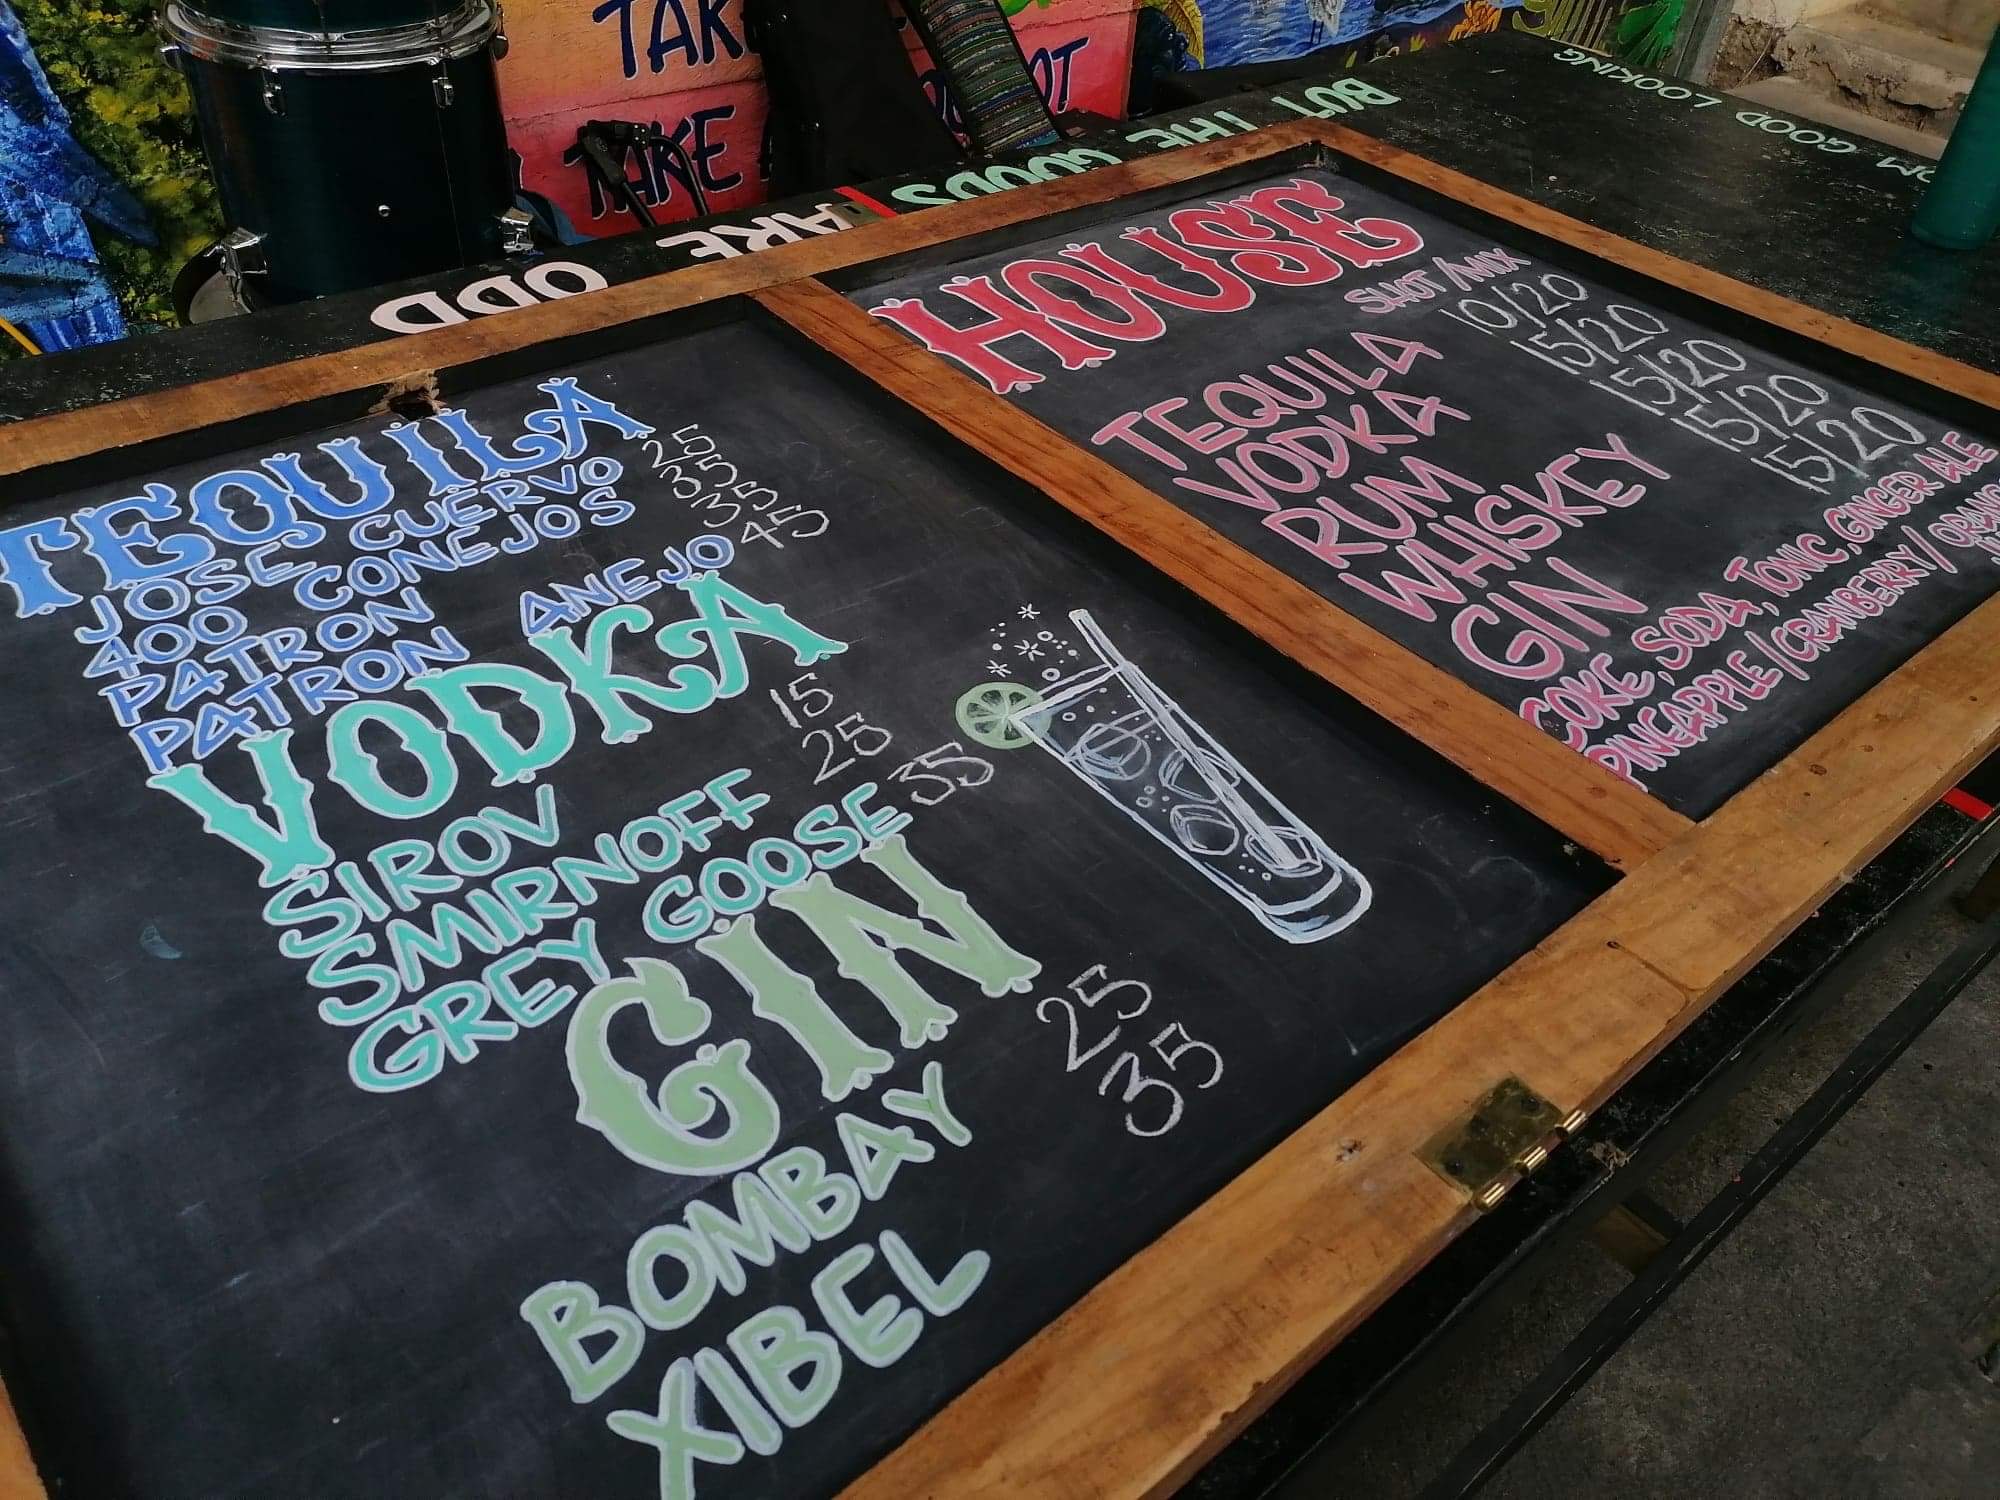 TAKE
TAKE
ODD
ARE
THE GOODS
BUT
GOOD LOOKING
TEQUILA
JOSE CUERVO 25
400 CONEJOS 35
PATRON 35
PATRON ANEJO 45
VODKA
SIROV 15
SMIRNOFF 25
GREY GOOSE 35
GIN
BOMBAY 25
XIBEL 35
HOUSE
SHOT/MIX
TEQUILA 10/20
VODKA 15/20
RUM 15/20
WHISKEY 15/20
GIN 15/20
COKE, SODA, TONIC, GINGER ALE
PINEAPPLE/CRANBERRY/